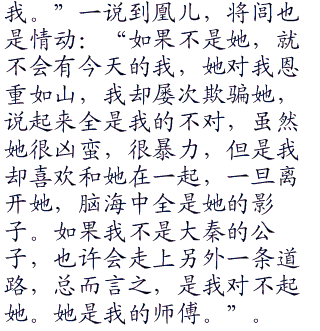 我。”一说到凰儿，将闾也
是情动：“如果不是她，就
不会有今天的我，她对我恩
重如山，我却屡次欺骗她，
说起来全是我的不对，虽然
她很凶蛮，很暴力，但是我
却喜欢和她在一起，一旦离
开她，脑海中全是她的影
子。如果我不是大秦的公
子，也许会走上另外一条道
路，总而言之，是我对不起
她。她是我的师傅。”。